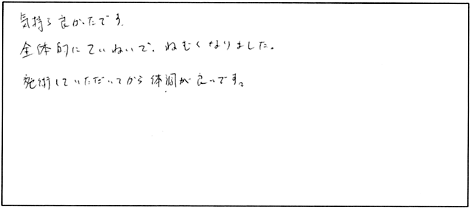 気持ち良かったです。
全体的にていねいで、ねむくなりました。
施術していただいてから体調が良いです。